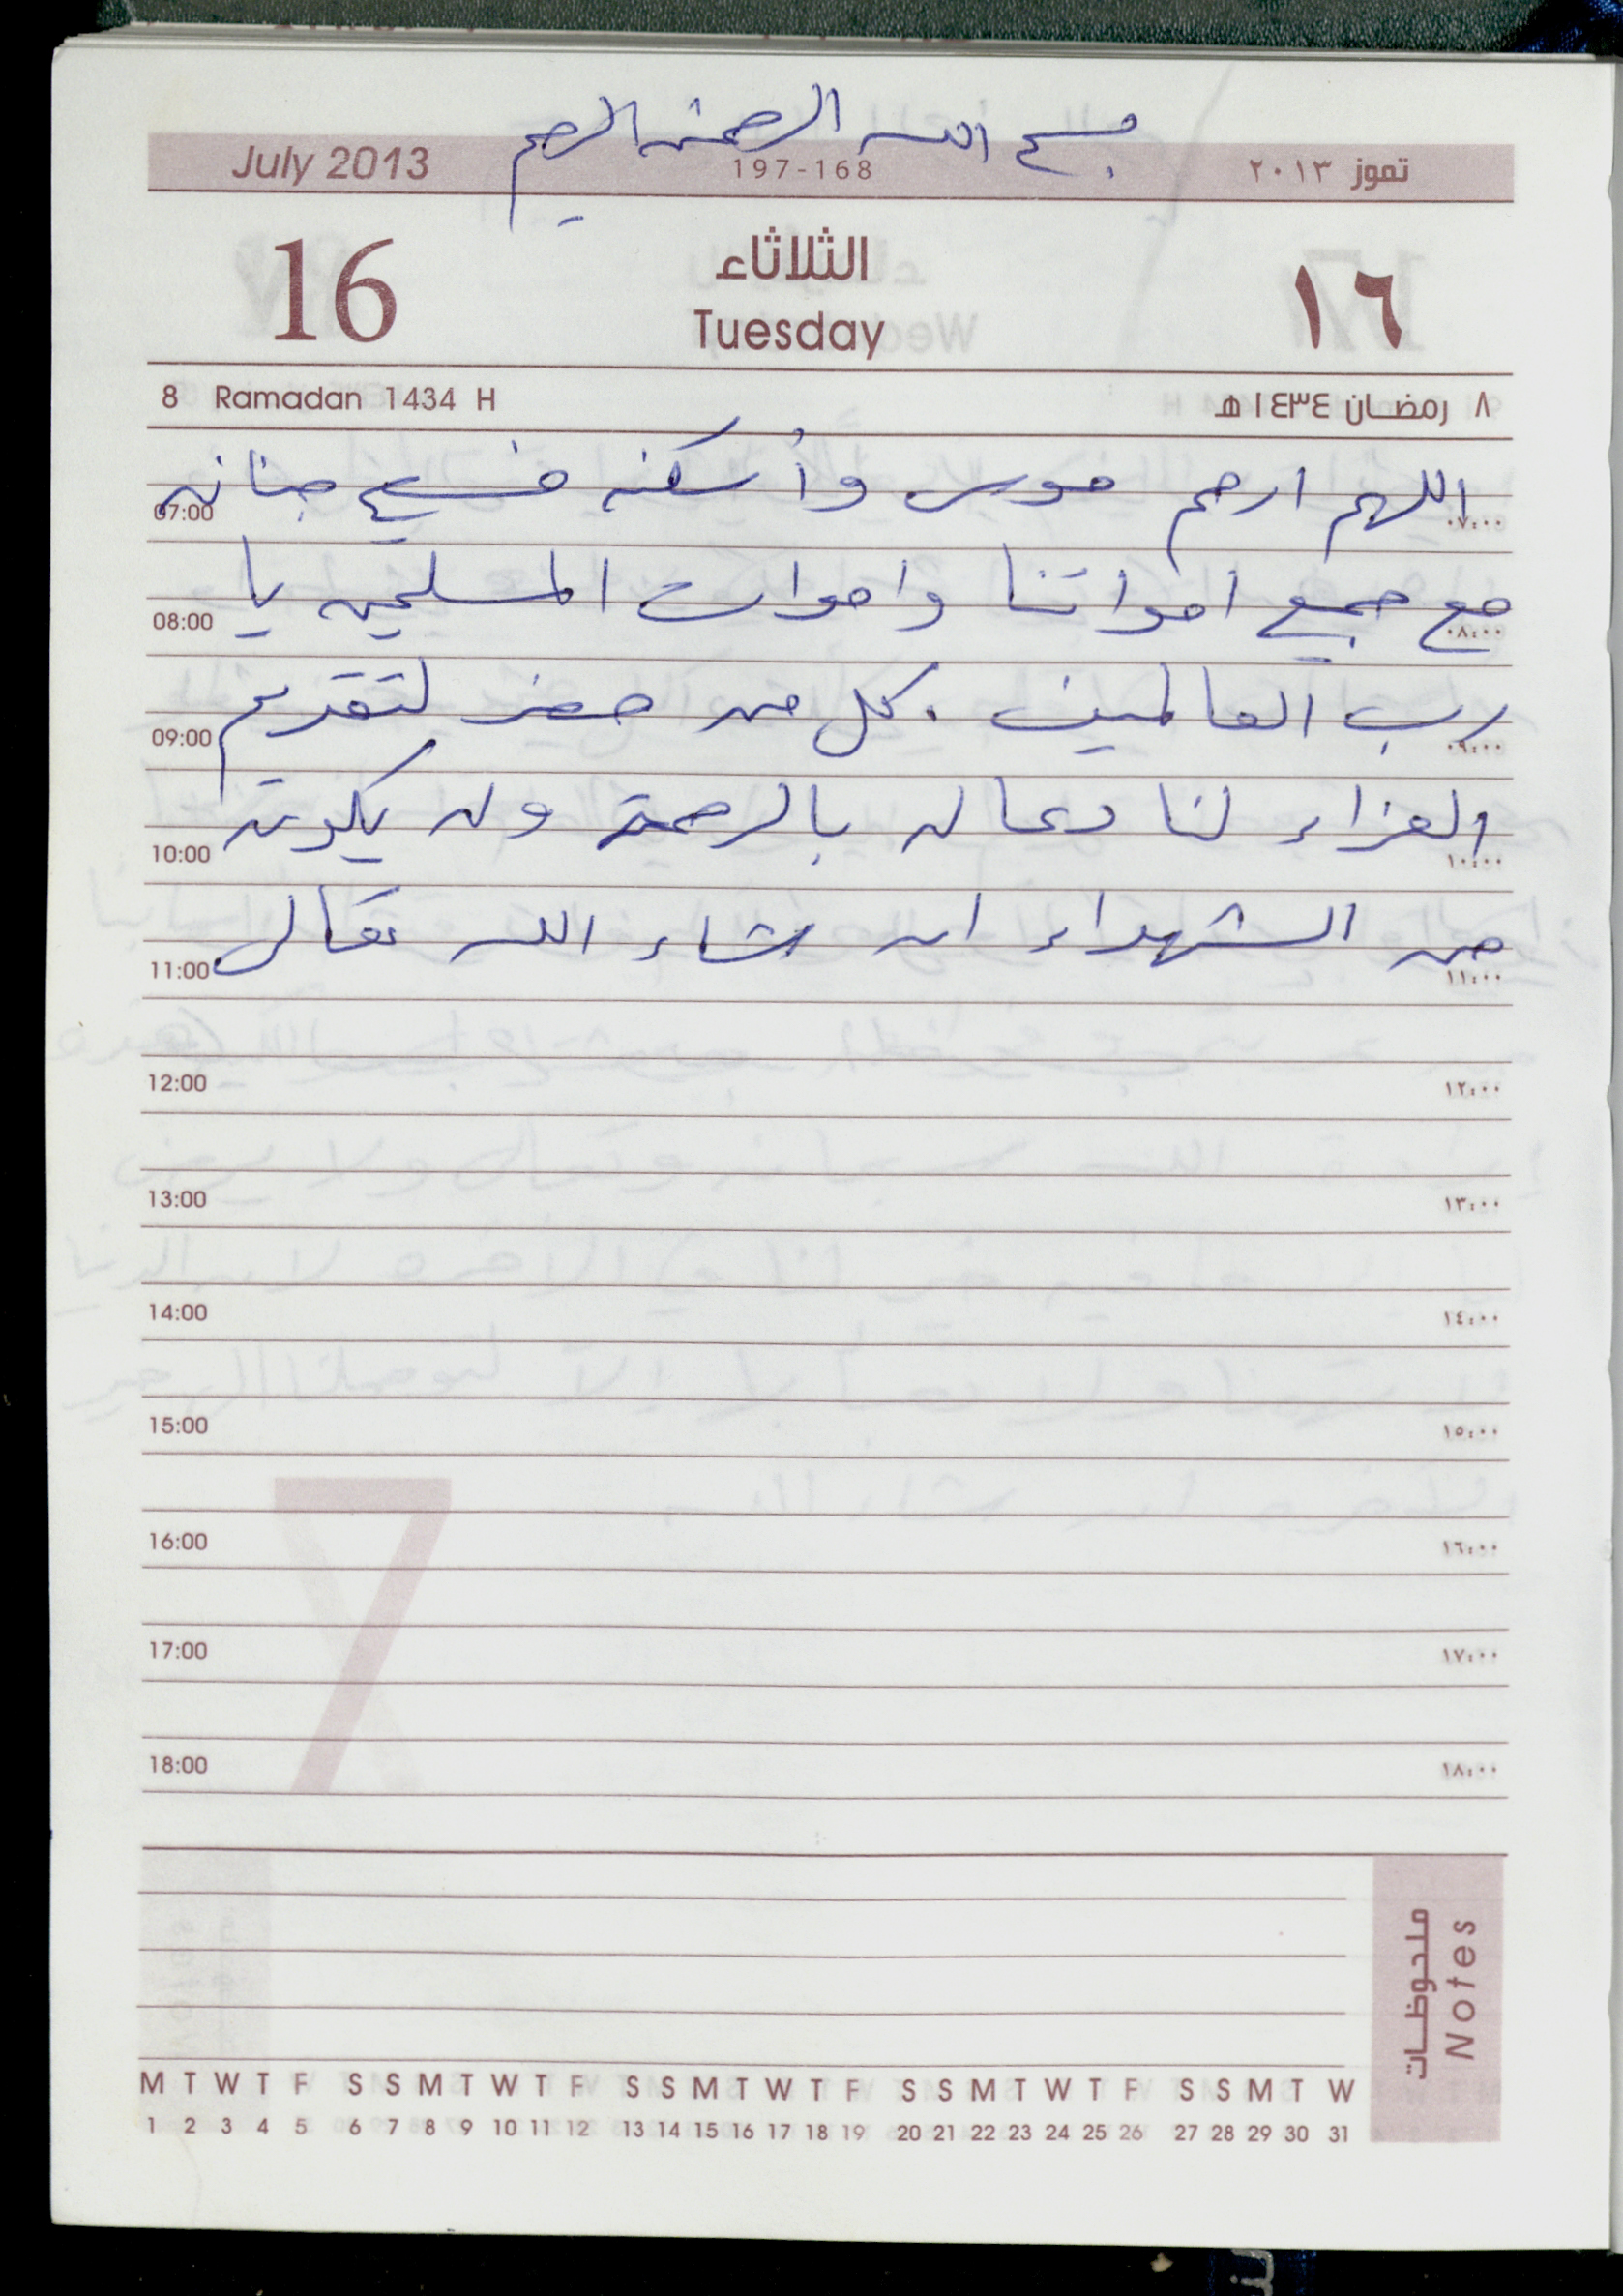 بسم الله الرحمن الرحيم
July 2013 197-168 تموز ٢٠١٣
16 الثلاثاء ١٦
Tuesday
8 Ramadan 1434 H ٨ رمضان ١٤٣٤ هـ
اللهم ارحم موسى وأسكنه فسيح جنانه
07:00 ٠٧:٠٠
مع جميع امواتنا واموات المسلمين يا
08:00 ٠٨:٠٠
رب العالمين . كل من حضر لتقديم
09:00 ٠٩:٠٠
العزاء لنا دعا له بالرحمة وان يكون
10:00 ١٠:٠٠
من الشهداء ان شاء الله تعالى
11:00 ١١:٠٠
12:00 ١٢:٠٠
13:00 ١٣:٠٠
14:00 ١٤:٠٠
15:00 ١٥:٠٠
16:00 ١٦:٠٠
17:00 ١٧:٠٠
18:00 ١٨:٠٠
7
ملحوظات
Notes
M T W T F S S M T W T F S S M T W T F S S M T W T F S S M T W
1 2 3 4 5 6 7 8 9 10 11 12 13 14 15 16 17 18 19 20 21 22 23 24 25 26 27 28 29 30 31